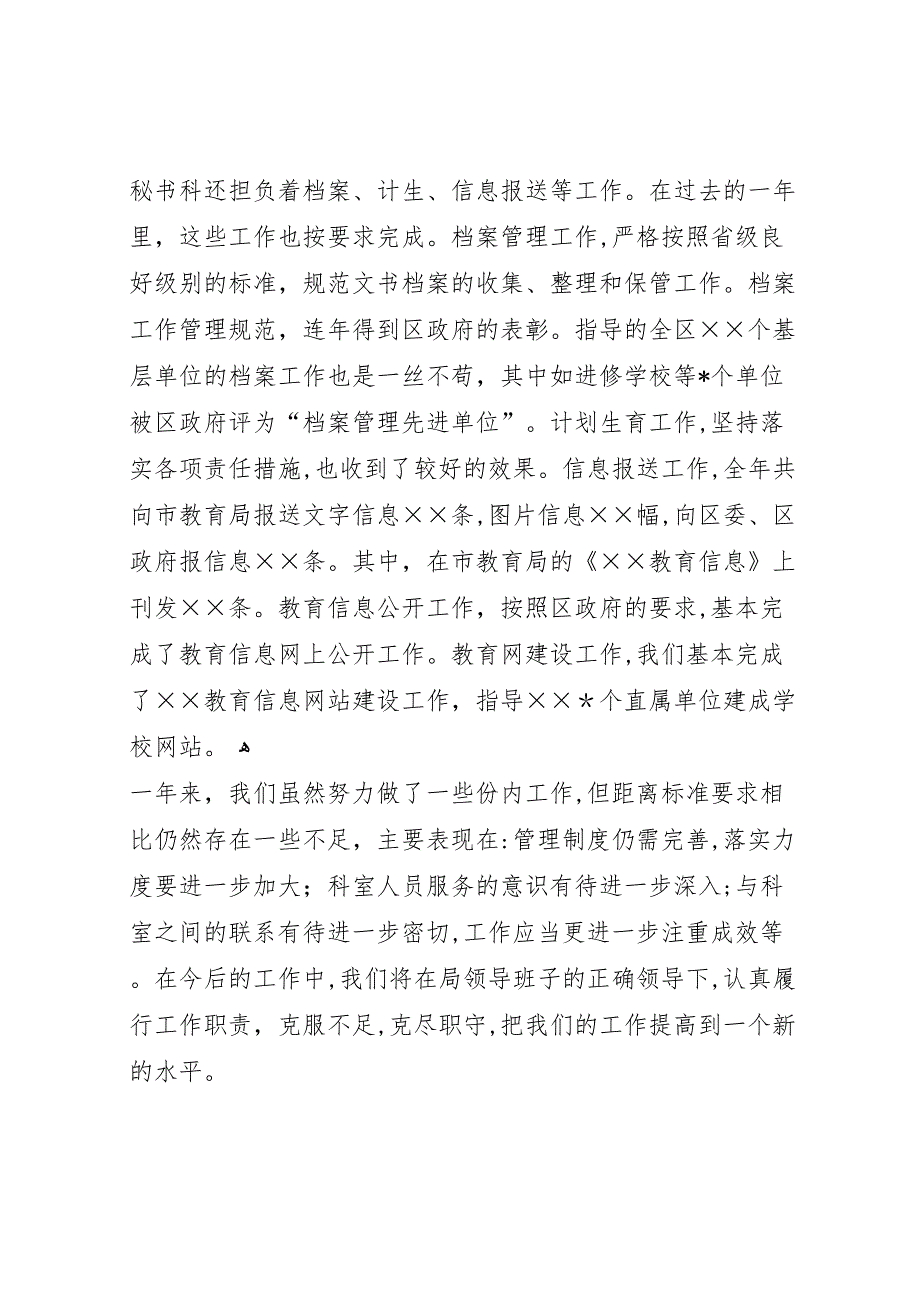 秘书科还担负着档案、计生、信息报送等工作。在过去的一年
里，这些工作也按要求完成。档案管理工作,严格按照省级良
好级别的标准，规范文书档案的收集、整理和保管工作。档案
工作管理规范，连年得到区政府的表彰。指导的全区××个基
层单位的档案工作也是一丝不苟，其中如进修学校等*个单位
被区政府评为“档案管理先进单位”。计划生育工作,坚持落
实各项责任措施,也收到了较好的效果。信息报送工作,全年共
向市教育局报送文字信息××条,图片信息××幅,向区委、区
政府报信息××条。其中，在市教育局的《××教育信息》上
刊发××条。教育信息公开工作，按照区政府的要求,基本完
成了教育信息网上公开工作。教育网建设工作,我们基本完成
了××教育信息网站建设工作，指导××＊个直属单位建成学
校网站。 ﻫ
一年来，我们虽然努力做了一些份内工作,但距离标准要求相
比仍然存在一些不足，主要表现在:管理制度仍需完善,落实力
度要进一步加大；科室人员服务的意识有待进一步深入;与科
室之间的联系有待进一步密切,工作应当更进一步注重成效等
。在今后的工作中,我们将在局领导班子的正确领导下,认真履
行工作职责，克服不足,克尽职守,把我们的工作提高到一个新
的水平。